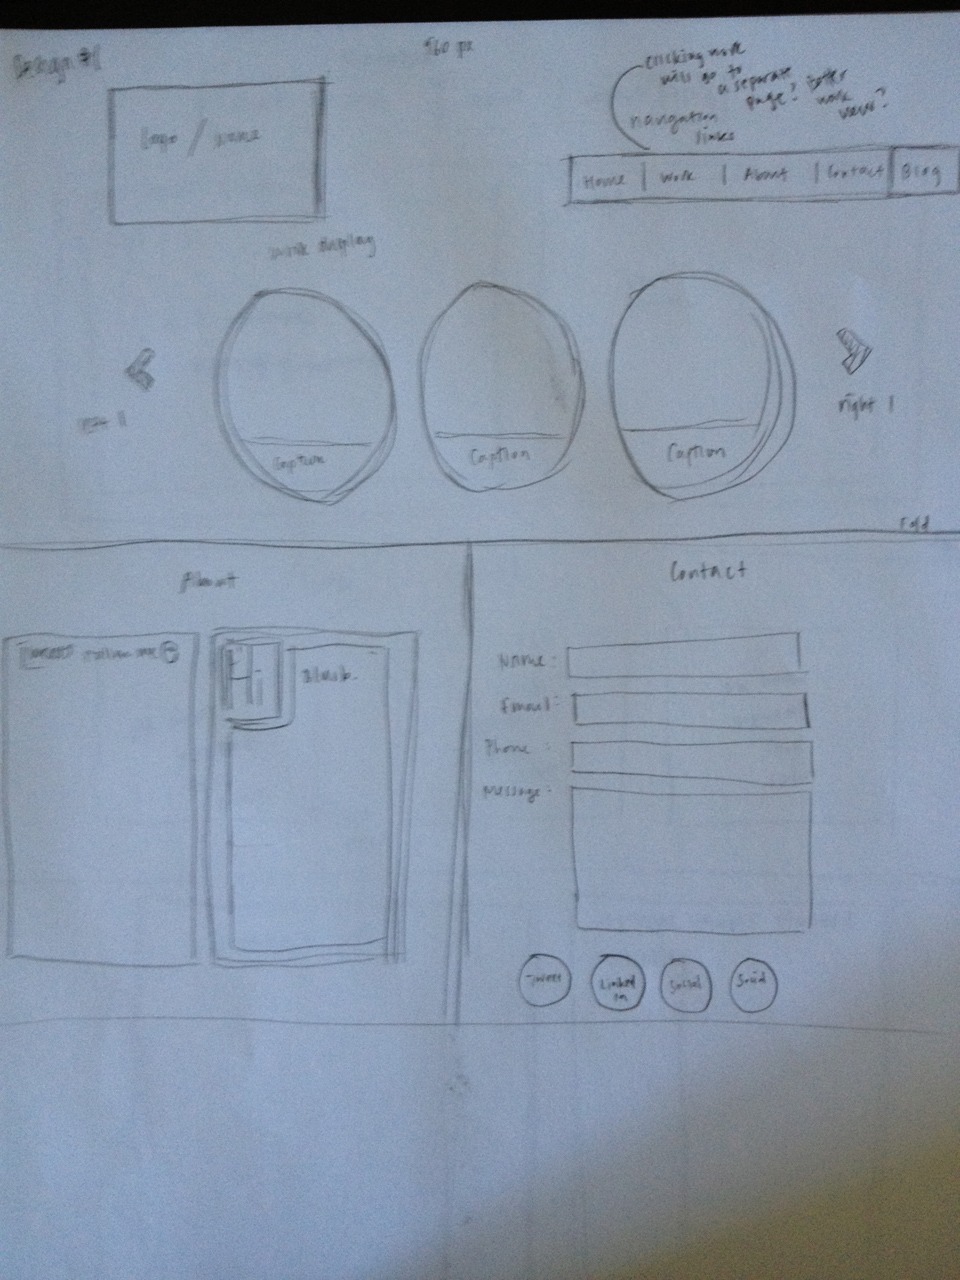 Design #1
960 px
clicking work
will go to
a separate
page? Better
work
view?
navigation
links
logo / name
Home | Work | About | Contact Blog
work display
left 1
right 1
Caption
Caption
Caption
Fold
About
Contact
follow me
Hi
Blurb.
Name:
Email:
Phone:
Message:
Tweet
Linked
In
Social
Social